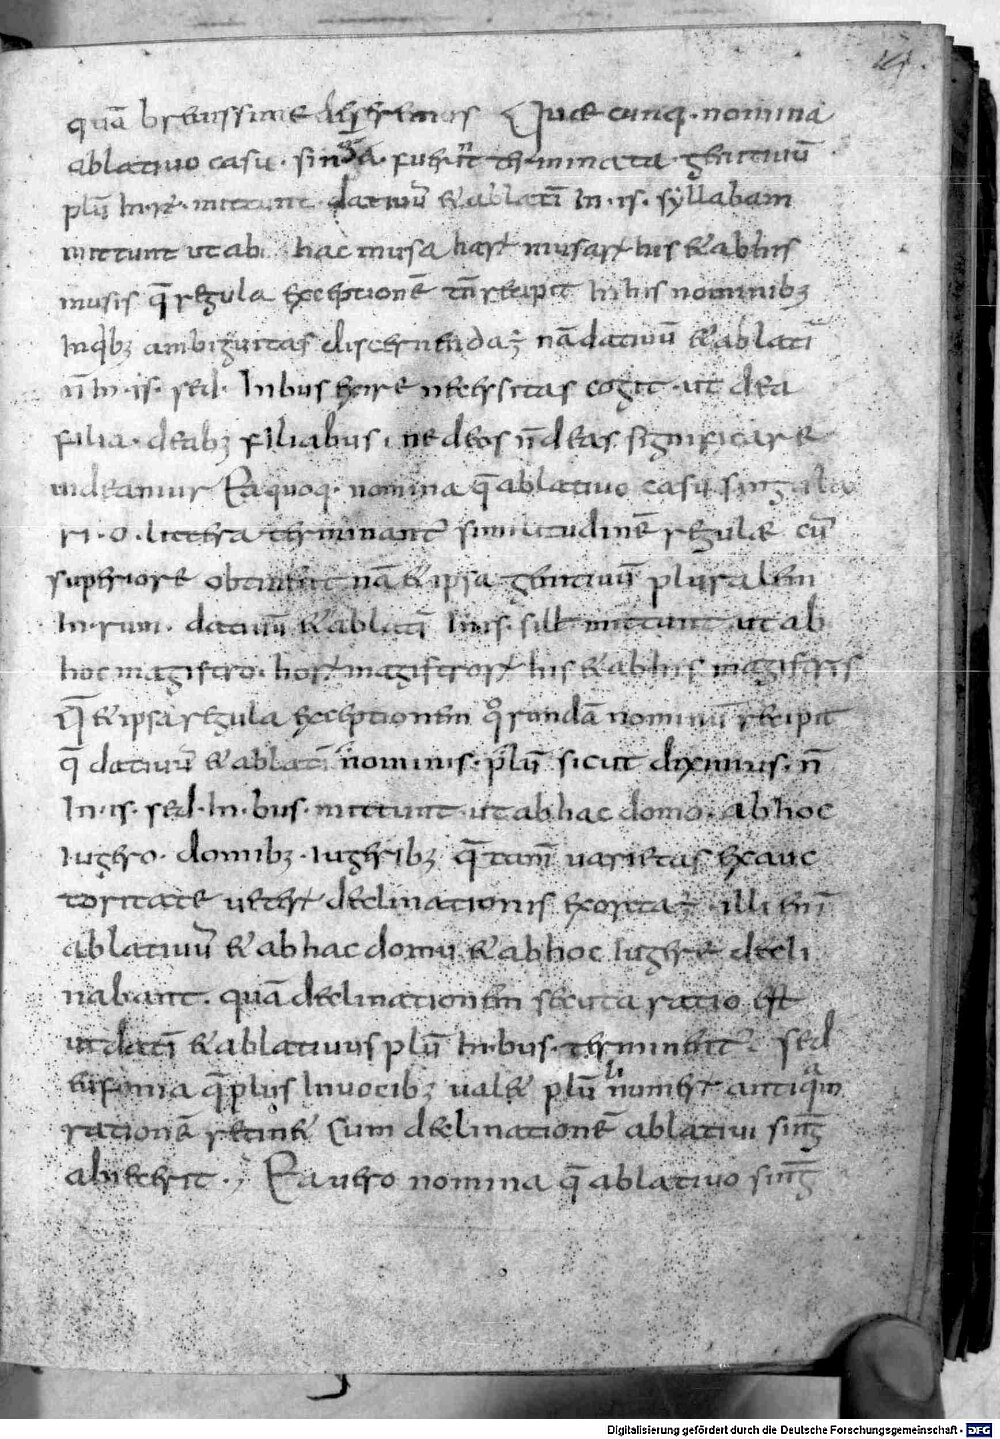 quā breuissime disseremus Quae cunq· nomina
ablatiuo casu · sing a · fuerīt terminata · genitiuū
plū In · rū · mittunt · datiuū & ablatī In · is · syllabam
mittunt ut ab hac musa harū musarū his & ab his
musis q̄ regula exceptionē tn̄ recipit In his nominibꝫ
Inqbꝫ ambiguitas discernenda ē nā datiuū & ablatiū
n̄ In · is · sed · In bus exire necessitas cogit · ut dea
filia · deabꝫ filiabus · ne deos n̄ deas significare
uideamur Ea quoq· nomina q̄ ablatiuo casu singula
ri · o · littera terminant̄ similitudinē regulae cū
superiore obtinent nā & ipsa genitiuū pluralem
In · rum · datiuū & ablatī In is · sill mittunt ut ab
hoc magistro · horū magistrorū his & ab his magistris
Q̄ & ipsa regula exceptionem qrundā nominū recipit
q̄ datiuū & ablatiū nominis · plū sicut diximus · n̄
In · is · sed · In · bus · mittunt · ut ab hac domo · ab hoc
Iugero · domibꝫ · Iugeribꝫ q̄ tam̄ uarietas ex auc
toritate ueterū declinationis exorta ē · illi enī
ablatiuū & ab hac domu & ab hoc Iugere decli
nabant · quā declinationem secuta ratio est
ut datī & ablatiuus plū In · bus · terminet̄ · sed
eufonia q̄ plus In uocibꝫ ual& plū numerū antiqam
rationē retin& Cum declinationē ablatiui sinḡ
abiecerit · Ea uero nomina q̄ ablatiuo sinḡ
Digitalisierung gefördert durch die Deutsche Forschungsgemeinschaft - DFG